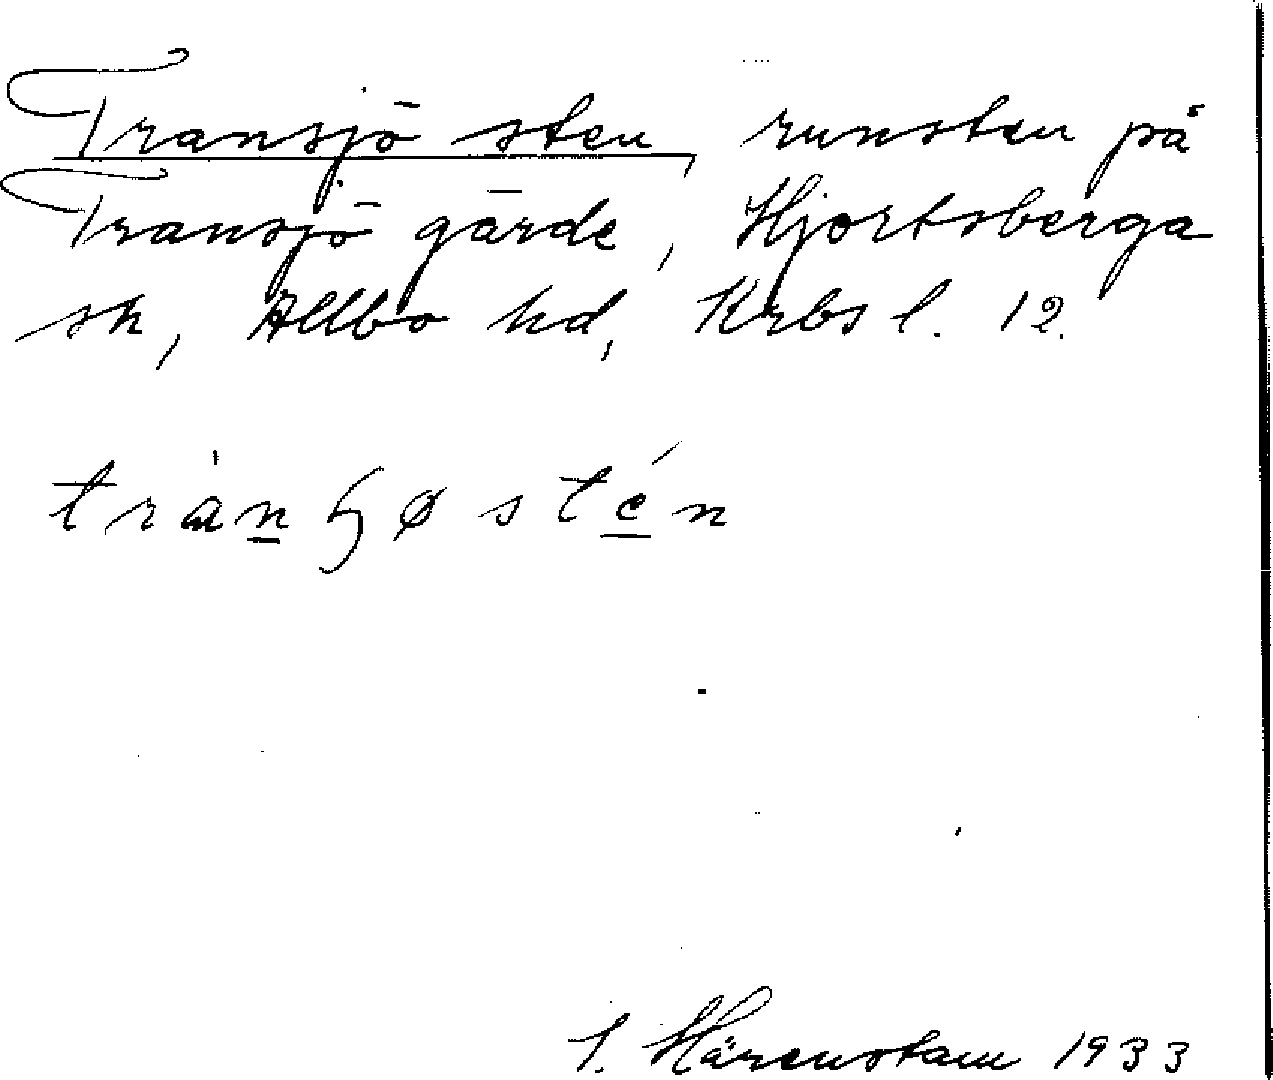 Transjö sten, runsten på
Transjö gärde, Hjortsberga
sn, Allbo hd, Krbs l. 12.
tra̍nɧøstén
S. Härenstam 1933